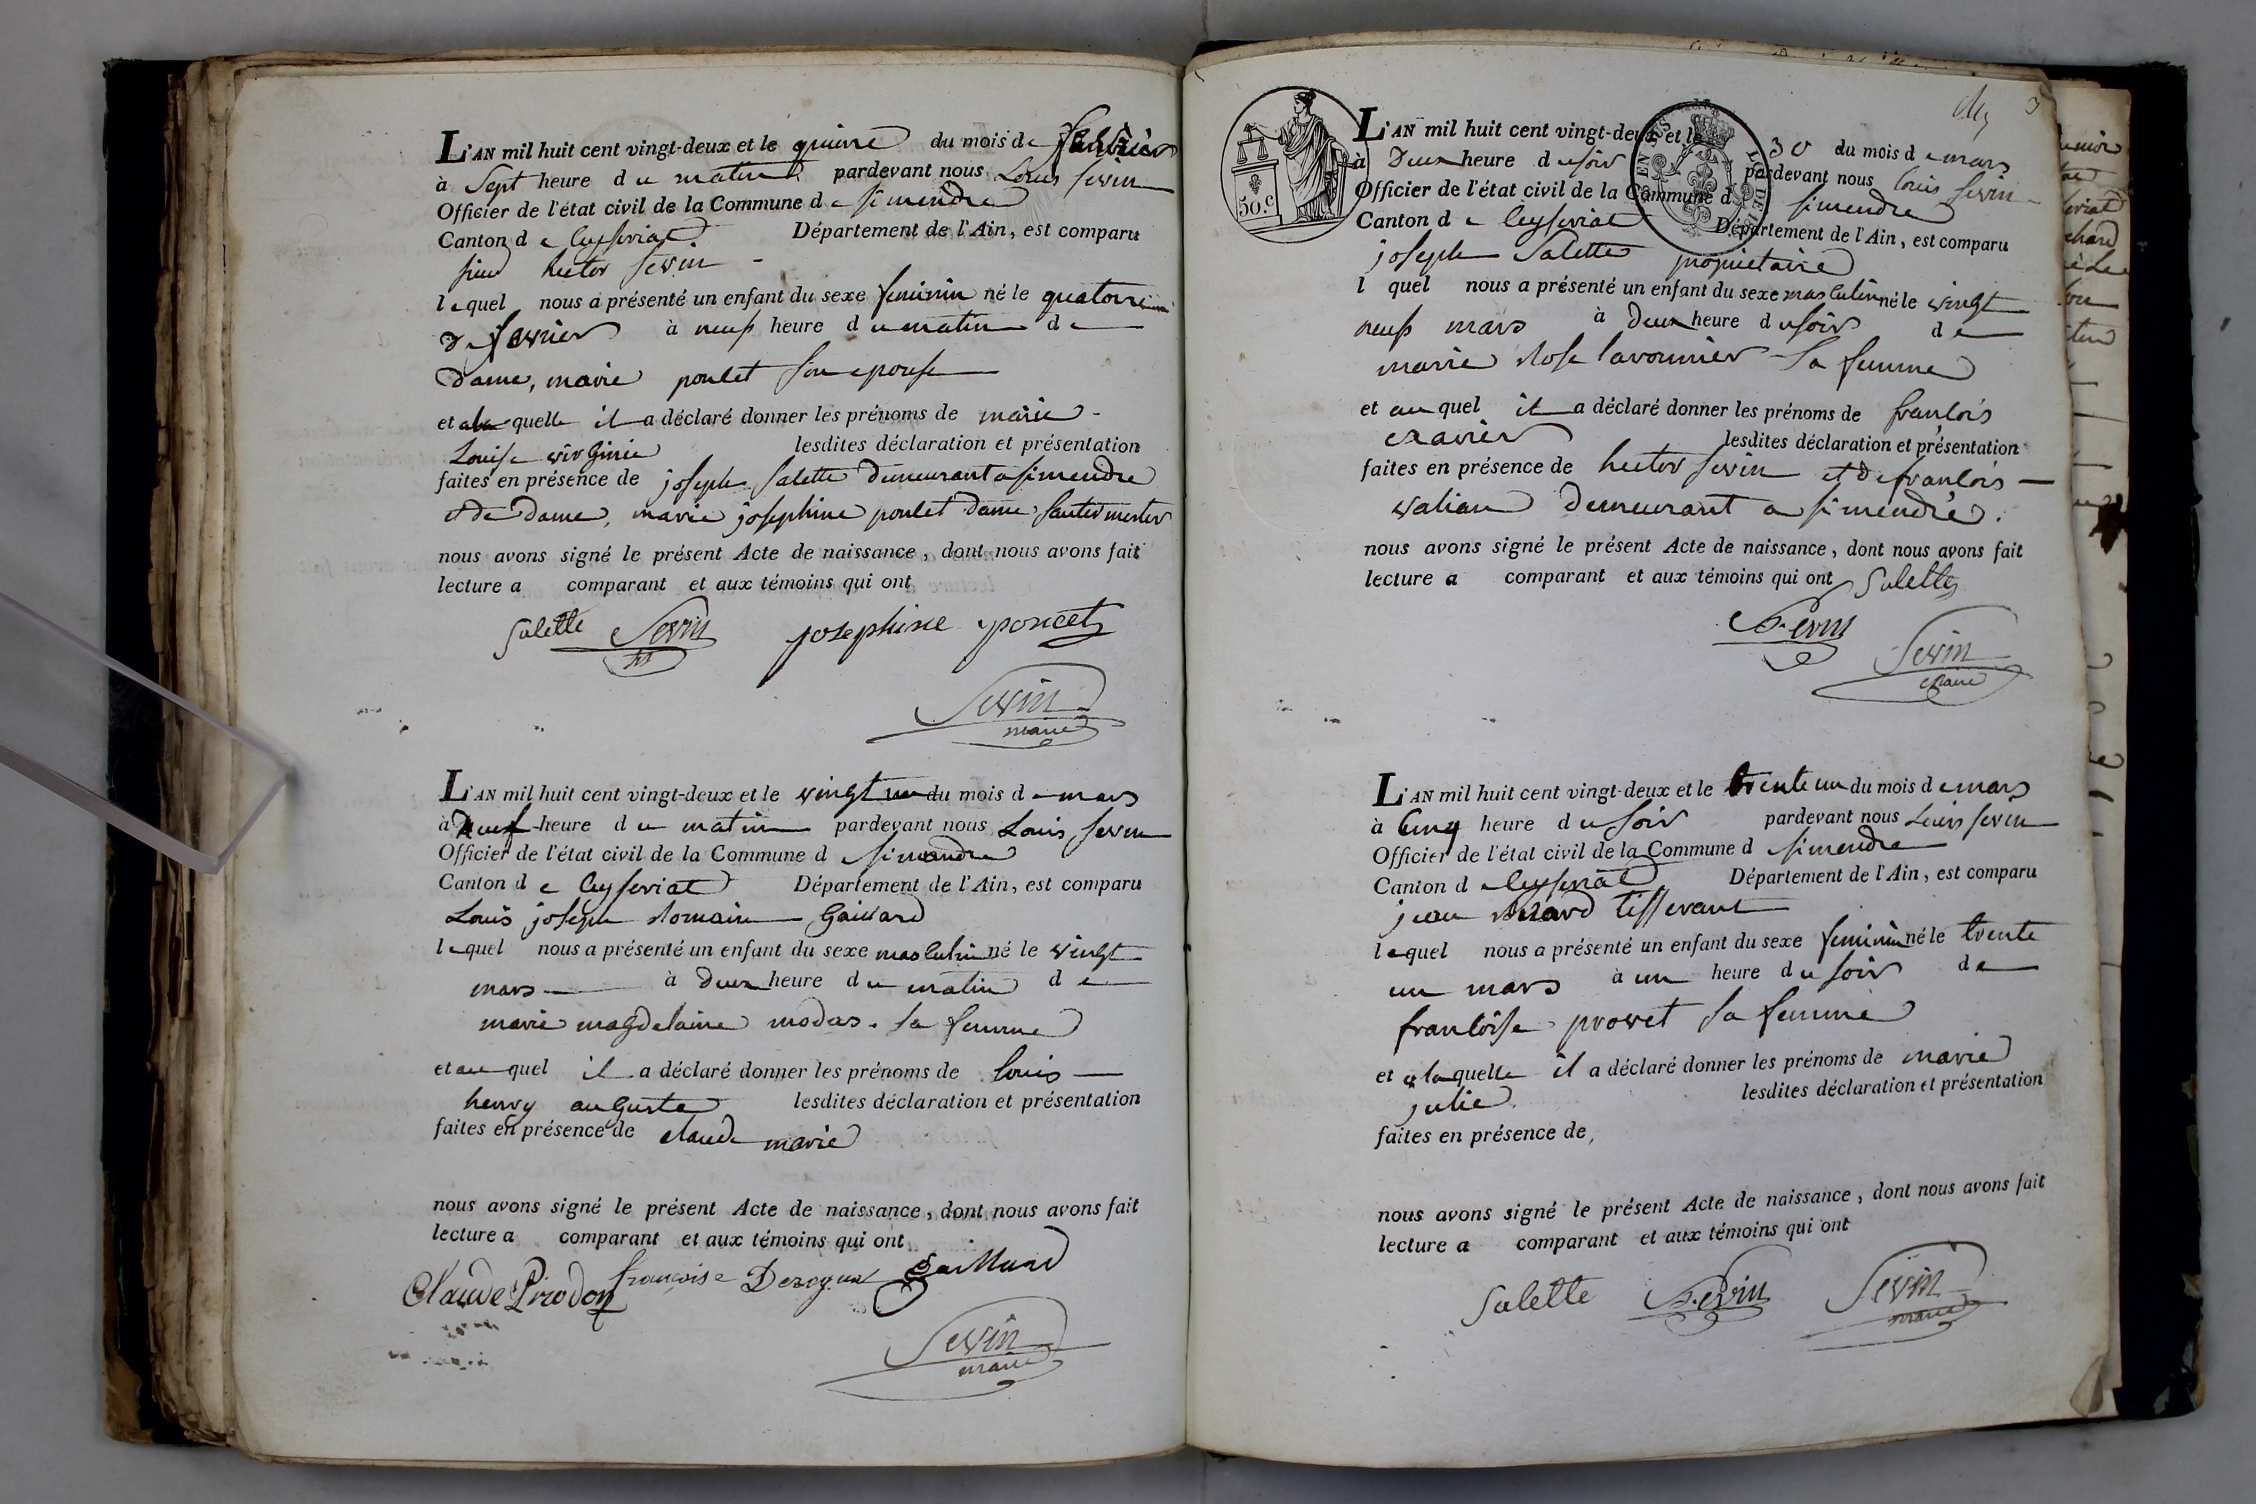 L'AN mil huit cent vingt-deux et le quinze du mois de fevrier
à Sept heure du matin pardevant nous Louis sevin
Officier de l'état civil de la Commune de simendre
Canton de Ceyseriat Département de l'Ain, est comparu
sieur hector sevin
lequel nous a présenté un enfant du sexe feminin né le quatorze
de fevrier à neuf heure du matin de
Dame, marie poulet son epouse
et a la quelle il a déclaré donner les prénoms de marie
Louise virginie lesdites déclaration et présentation
faites en présence de joseph Salette demeurant a simendre
et de dame, marie josephine poulet Dame
nous avons signé le présent Acte de naissance, dont nous avons fait
lecture a comparant et aux témoins qui ont
Salette Sevin josephine poncet
Sevin
maire
L'AN mil huit cent vingt-deux et le vingt un du mois de mars
à neuf heure du matin pardevant nous Louis sevin
Officier de l'état civil de la Commune d simandre
Canton de Ceyseriat Département de l'Ain, est comparu
Louis joseph Romain Gaillard
lequel nous a présenté un enfant du sexe masculin né le vingt
mars à deux heure du matin de
marie magdelaine modas. sa femme
et au quel il a déclaré donner les prénoms de louis
henry auguste lesdites déclaration et présentation
faites en présence de claude marie
nous avons signé le présent Acte de naissance, dont nous avons fait
lecture a comparant et aux témoins qui ont
Claude Prodon françoise gaillard
Sevin
maire
3
50.c
L'AN mil huit cent vingt-deux et le 30 du mois de mars
à Deux heure du soir pardevant nous louis sevin
Officier de l'état civil de la Commune d simendre
Canton de Ceyseriat Département de l'Ain, est comparu
joseph Salette propriétaire
l quel nous a présenté un enfant du sexe masculin né le vingt
neuf mars à deux heure du soir de
marie Rose lavounier sa femme
et au quel il a déclaré donner les prénoms de francois
exavier lesdites déclaration et présentation
faites en présence de hector sevin et de francois
valian demeurant a simendre.
nous avons signé le présent Acte de naissance, dont nous avons fait
lecture a comparant et aux témoins qui ont Salette
h. sevin
Sevin
maire
L'AN mil huit cent vingt-deux et le trente un du mois de mars
à Cinq heure du soir pardevant nous Louis sevin
Officier de l'état civil de la Commune d simendre
Canton de Ceyseriat Département de l'Ain, est comparu
jean tisserant
lequel nous a présenté un enfant du sexe feminin né le trente
un mars à un heure du soir de
francoise provet sa femme
et a la quelle il a déclaré donner les prénoms de marie
julie lesdites déclaration et présentation
faites en présence de,
nous avons signé le présent Acte de naissance, dont nous avons fait
lecture a comparant et aux témoins qui ont
Salette h. sevin Sevin
maire